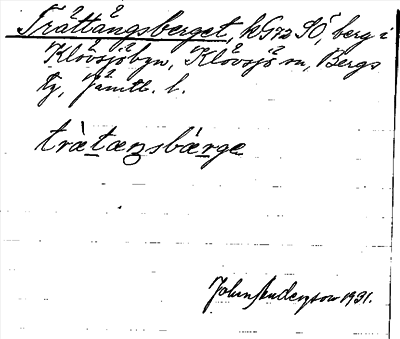 Trättängsberget, k G72 SÖ, berg i
Klövsjöbyn, Klövsjö sn, Bergs
tg, Jämtl. l.
trætæŋsbærge
John Anderson 1931.